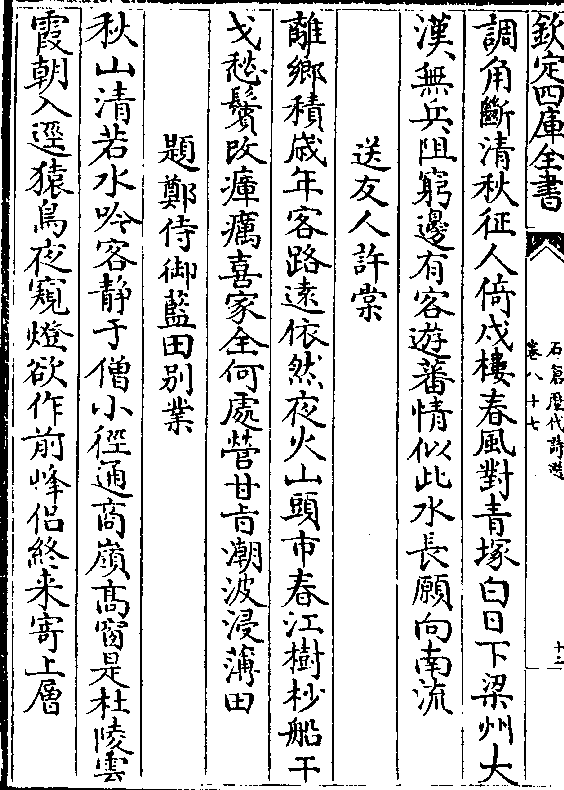 欽定四庫全書
石倉歷代詩選
卷八十七
十二
調角斷清秋征人倚戍樓春風對青塚白日下梁州大
漢無兵阻窮邊有客遊蕃情似此水長願向南流
送友人許棠
離鄉積歲年客路遠依然夜火山頭市春江樹杪船干
戈愁鬢改瘴癘喜家全何處營甘旨潮波浸薄田
題鄭侍御藍田别業
秋山清若水吟客静于僧小徑通商嶺髙窗是杜陵雲
霞朝入逕猿鳥夜窺燈欲作前峰侣終来寄上層